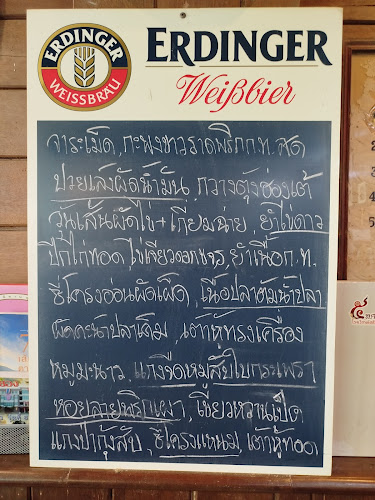 ERDINGER
WEISSBRÄU
ERDINGER
Weißbier
จาระเม็ด, กะพงขาวราดพริก ก.ท. สด
ปวยเล้งผัดน้ำมัน, กวางตุ้งฮ่องเต้
วุ้นเส้นผัดไข่+เกี้ยมฉ่าย, ยำไข่ดาว
ปีกไก่ทอด, ไข่เจียวดอกขจร, ยำเนื้อ ก.ท.
ซี่โครงอ่อนผัดเผ็ด, เนื้อปลาต้มน้ำปลา
ผัดคะน้าปลาเค็ม, เต้าหู้ทรงเครื่อง
หมูมะนาว, แกงจืดหมูสับใบกระเพรา
หอยลายพริกเผา, เขียวหวานเป็ด
แกงป่ากุ้งสับ, ซี่โครงแหนม, เต้าหู้ทอด